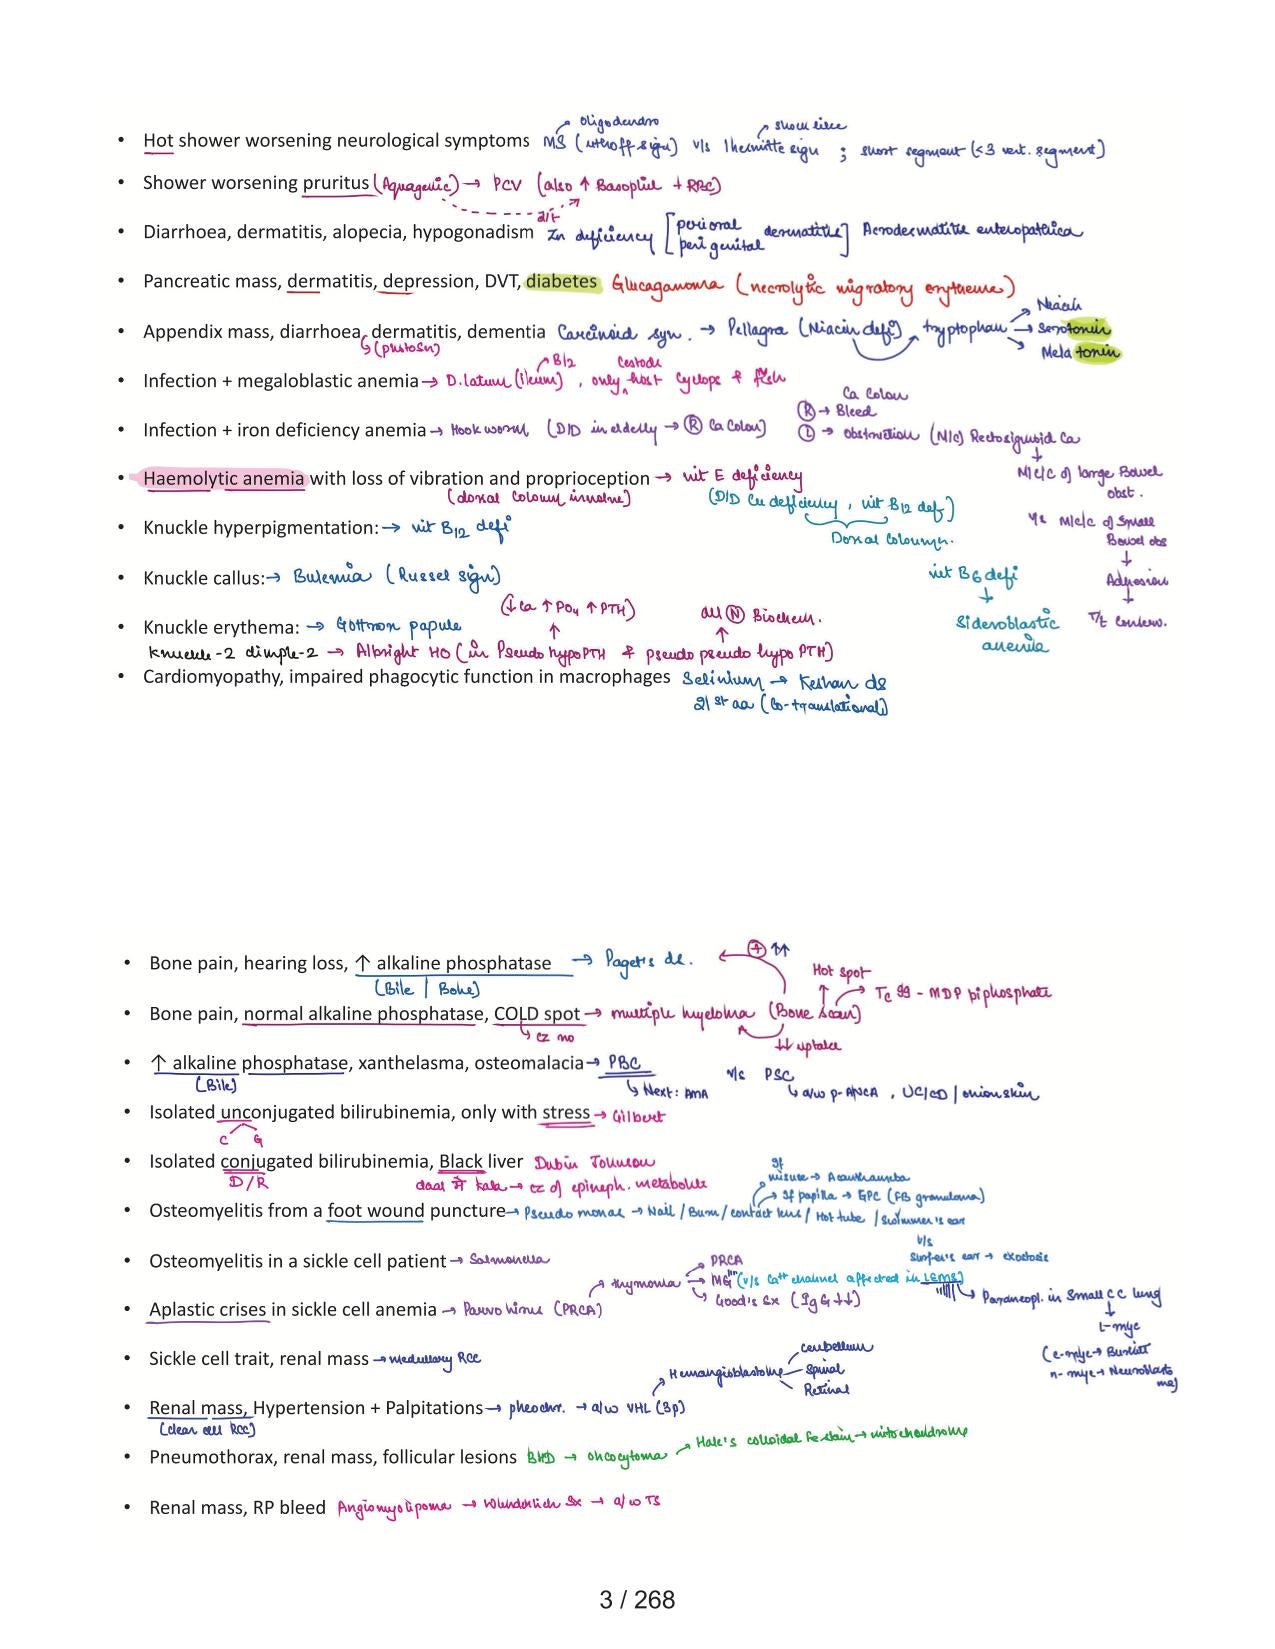 oligodendro
shock like
• Hot shower worsening neurological symptoms MS (uthoff sign) v/s lhermitte sign ; short segment (<3 vert. segment)
• Shower worsening pruritus (Aquagenic) → PCV (also ↑ Basophil + RBC)
d/t
• Diarrhoea, dermatitis, alopecia, hypogonadism Zn deficiency [perioral perigenital dermatitis] Acrodermatitis enteropathica
• Pancreatic mass, dermatitis, depression, DVT, diabetes Glucagonoma (necrolytic migratory erytheme)
Niacin
• Appendix mass, diarrhoea, dermatitis, dementia Carcinoid syn. → Pellagra (Niacin defi) tryptophan → Serotonin
(photosn)
Melatonin
B12 Cestode
• Infection + megaloblastic anemia → D.latum (ileum), only host cyclops & fish
Ca Colon
Ⓡ → Bleed
• Infection + iron deficiency anemia → Hookworm (D/D in elderly → Ⓡ Ca Colon) Ⓛ → obstruction (M/c) Rectosigmoid Ca
↓
M/c/c of large Bowel obst.
• Haemolytic anemia with loss of vibration and proprioception → vit E deficiency
(dorsal column involve) (D/D Cu deficiency, vit B12 def)
Dorsal Coloumn.
v/s M/c/c of Small Bowel obs
↓
Adhesion
↓
T/t conserv.
• Knuckle hyperpigmentation: → vit B12 defi
vit B6 defi
↓
Sideroblastic anemia
• Knuckle callus: → Bulemia (Russel sign)
(↓Ca ↑PO4 ↑PTH) all Ⓝ Biochem.
• Knuckle erythema: → Gottron papule
Knuckle-2 dimple-2 → Albright HO (in Pseudo hypoPTH & pseudo pseudo hypo PTH)
• Cardiomyopathy, impaired phagocytic function in macrophages Selinium → Keshan ds
21st aa (Co-translational)
⊕ ↑↑
• Bone pain, hearing loss, ↑ alkaline phosphatase → Paget's de.
(Bile | Bone)
Hot spot
Tc 99 - MDP biphosphate
• Bone pain, normal alkaline phosphatase, COLD spot → multiple myeloma (Bone scan)
cz no
↓↓ uptake
• ↑ alkaline phosphatase, xanthelasma, osteomalacia → PBC v/s PSC
(Bile)
Next: AMA
a/w p-ANCA, UC/CD / onion skin
• Isolated unconjugated bilirubinemia, only with stress → Gilbert
C G
• Isolated conjugated bilirubinemia, Black liver Dubin Johnson
D/R
दाल में kala → cz of epineph. metabolite
If misuse → Acanthamoeba
If papilla → GPC (FB granuloma)
• Osteomyelitis from a foot wound puncture → Pseudomonas → Nail / Burn / contact lens / Hot tube / Swimmer's ear
v/s
Surfer's ear → exostosis
• Osteomyelitis in a sickle cell patient → Salmonella
PRCA
thymoma → MG (v/s Ca++ channel affected in LEMS)
Good's Sx (IgG↓↓)
Paraneopl. in Small CC lung
↓
L-myc
(c-myc → Burkitt
n-myc → Neuroblastoma)
• Aplastic crises in sickle cell anemia → Parvo virus (PRCA)
• Sickle cell trait, renal mass → medullary RCC
cerebellum
Hemangioblastoma Spinal
Retinal
• Renal mass, Hypertension + Palpitations → pheochr. → a/w VHL (3p)
(clear cell RCC)
• Pneumothorax, renal mass, follicular lesions BHD → oncocytoma Hale's colloidal Fe stain → mitochondrone
• Renal mass, RP bleed Angiomyolipoma → Wunderlich Sx → a/w TS
3 / 268